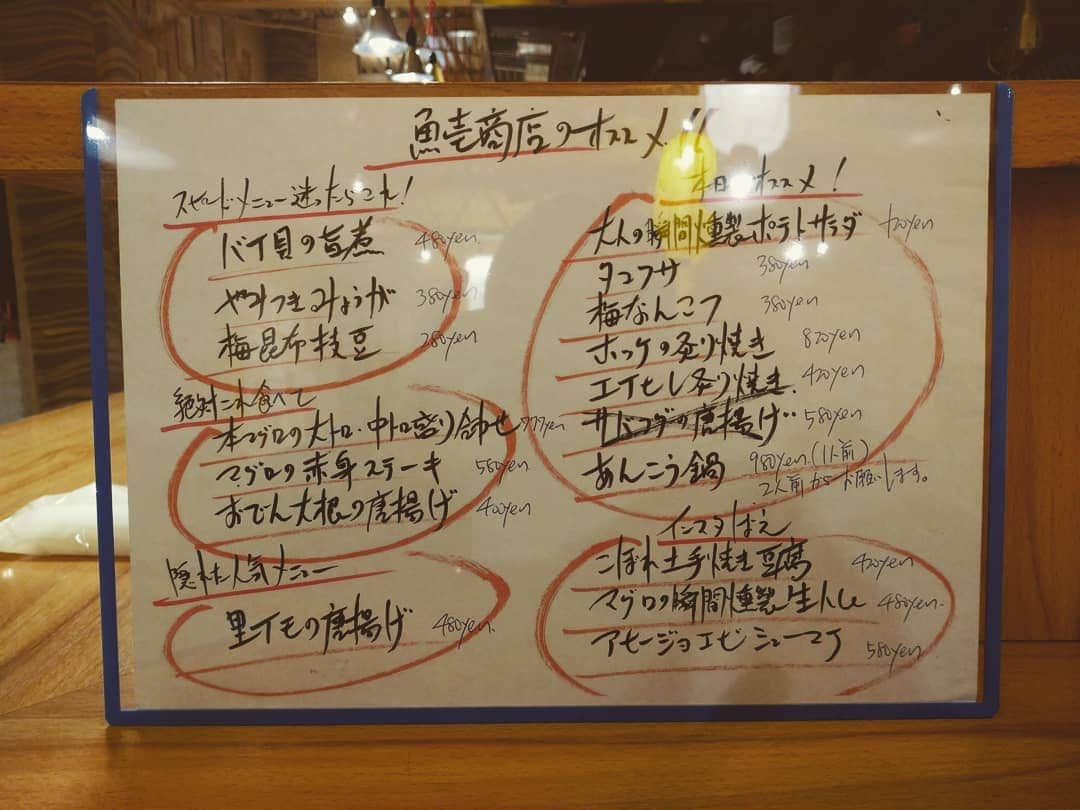 魚壱商店のオススメ!!
スピードメニュー迷ったらこれ!
バイ貝の旨煮 480yen.
やみつきみょうが 380yen
梅昆布枝豆 280yen
絶対これ食べて
本マグロの大トロ・中トロ盛り合わせ 777yen
マグロの赤身ステーキ 580yen
おでん大根の唐揚げ 400yen
隠れた人気メニュー
里イモの唐揚げ 480yen.
本日オススメ!
大人の瞬間燻製ポテトサラダ 420yen
タコワサ 380yen
梅なんこつ 380yen
ホッケの炙り焼き 820yen
エイヒレ炙り焼き. 420yen
の唐揚げ 580yen
あんこう鍋 980yen.(1人前)
2人前からお願いします。
インスタばえ
こぼれ土手焼き豆腐 420yen
マグロの瞬間燻製生ハム 480yen.
アヒージョエビシューマイ 580yen